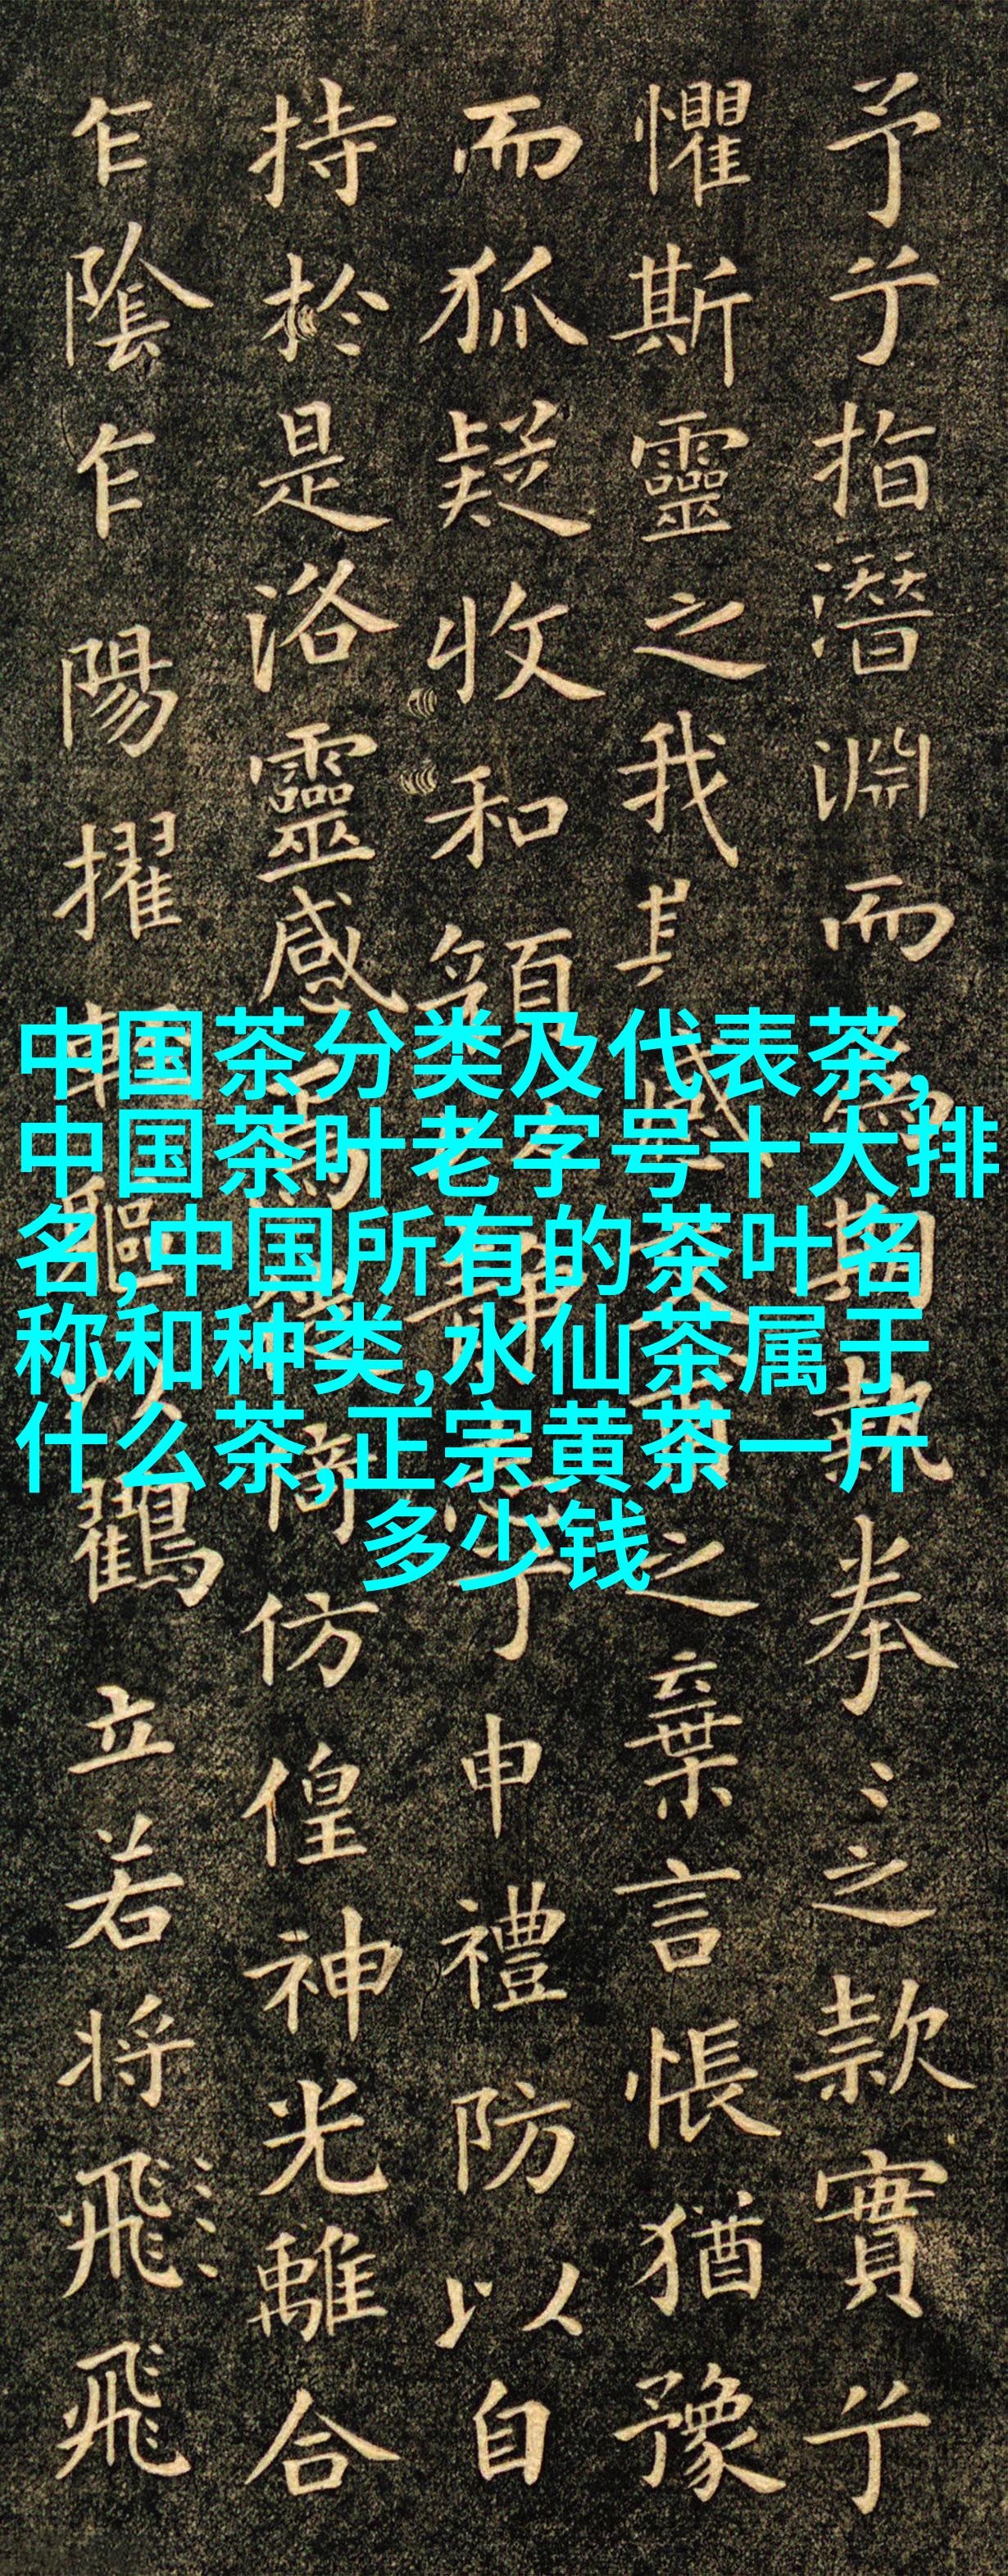 予兮指潛淵而為期執拳〻之款實兮
懼斯靈之我感之棄言悵猶豫
而狐疑收和顏靜兮申禮防以自
持於是洛靈感焉倚仿偟神光離合
乍陰乍陽擢輕軀以鶴立若將飛飛
中国茶分类及代表茶,
中国茶叶老字号十大排
名,中国所有的茶叶名
称和种类,水仙茶属于
什么茶,正宗黄茶一斤
多少钱